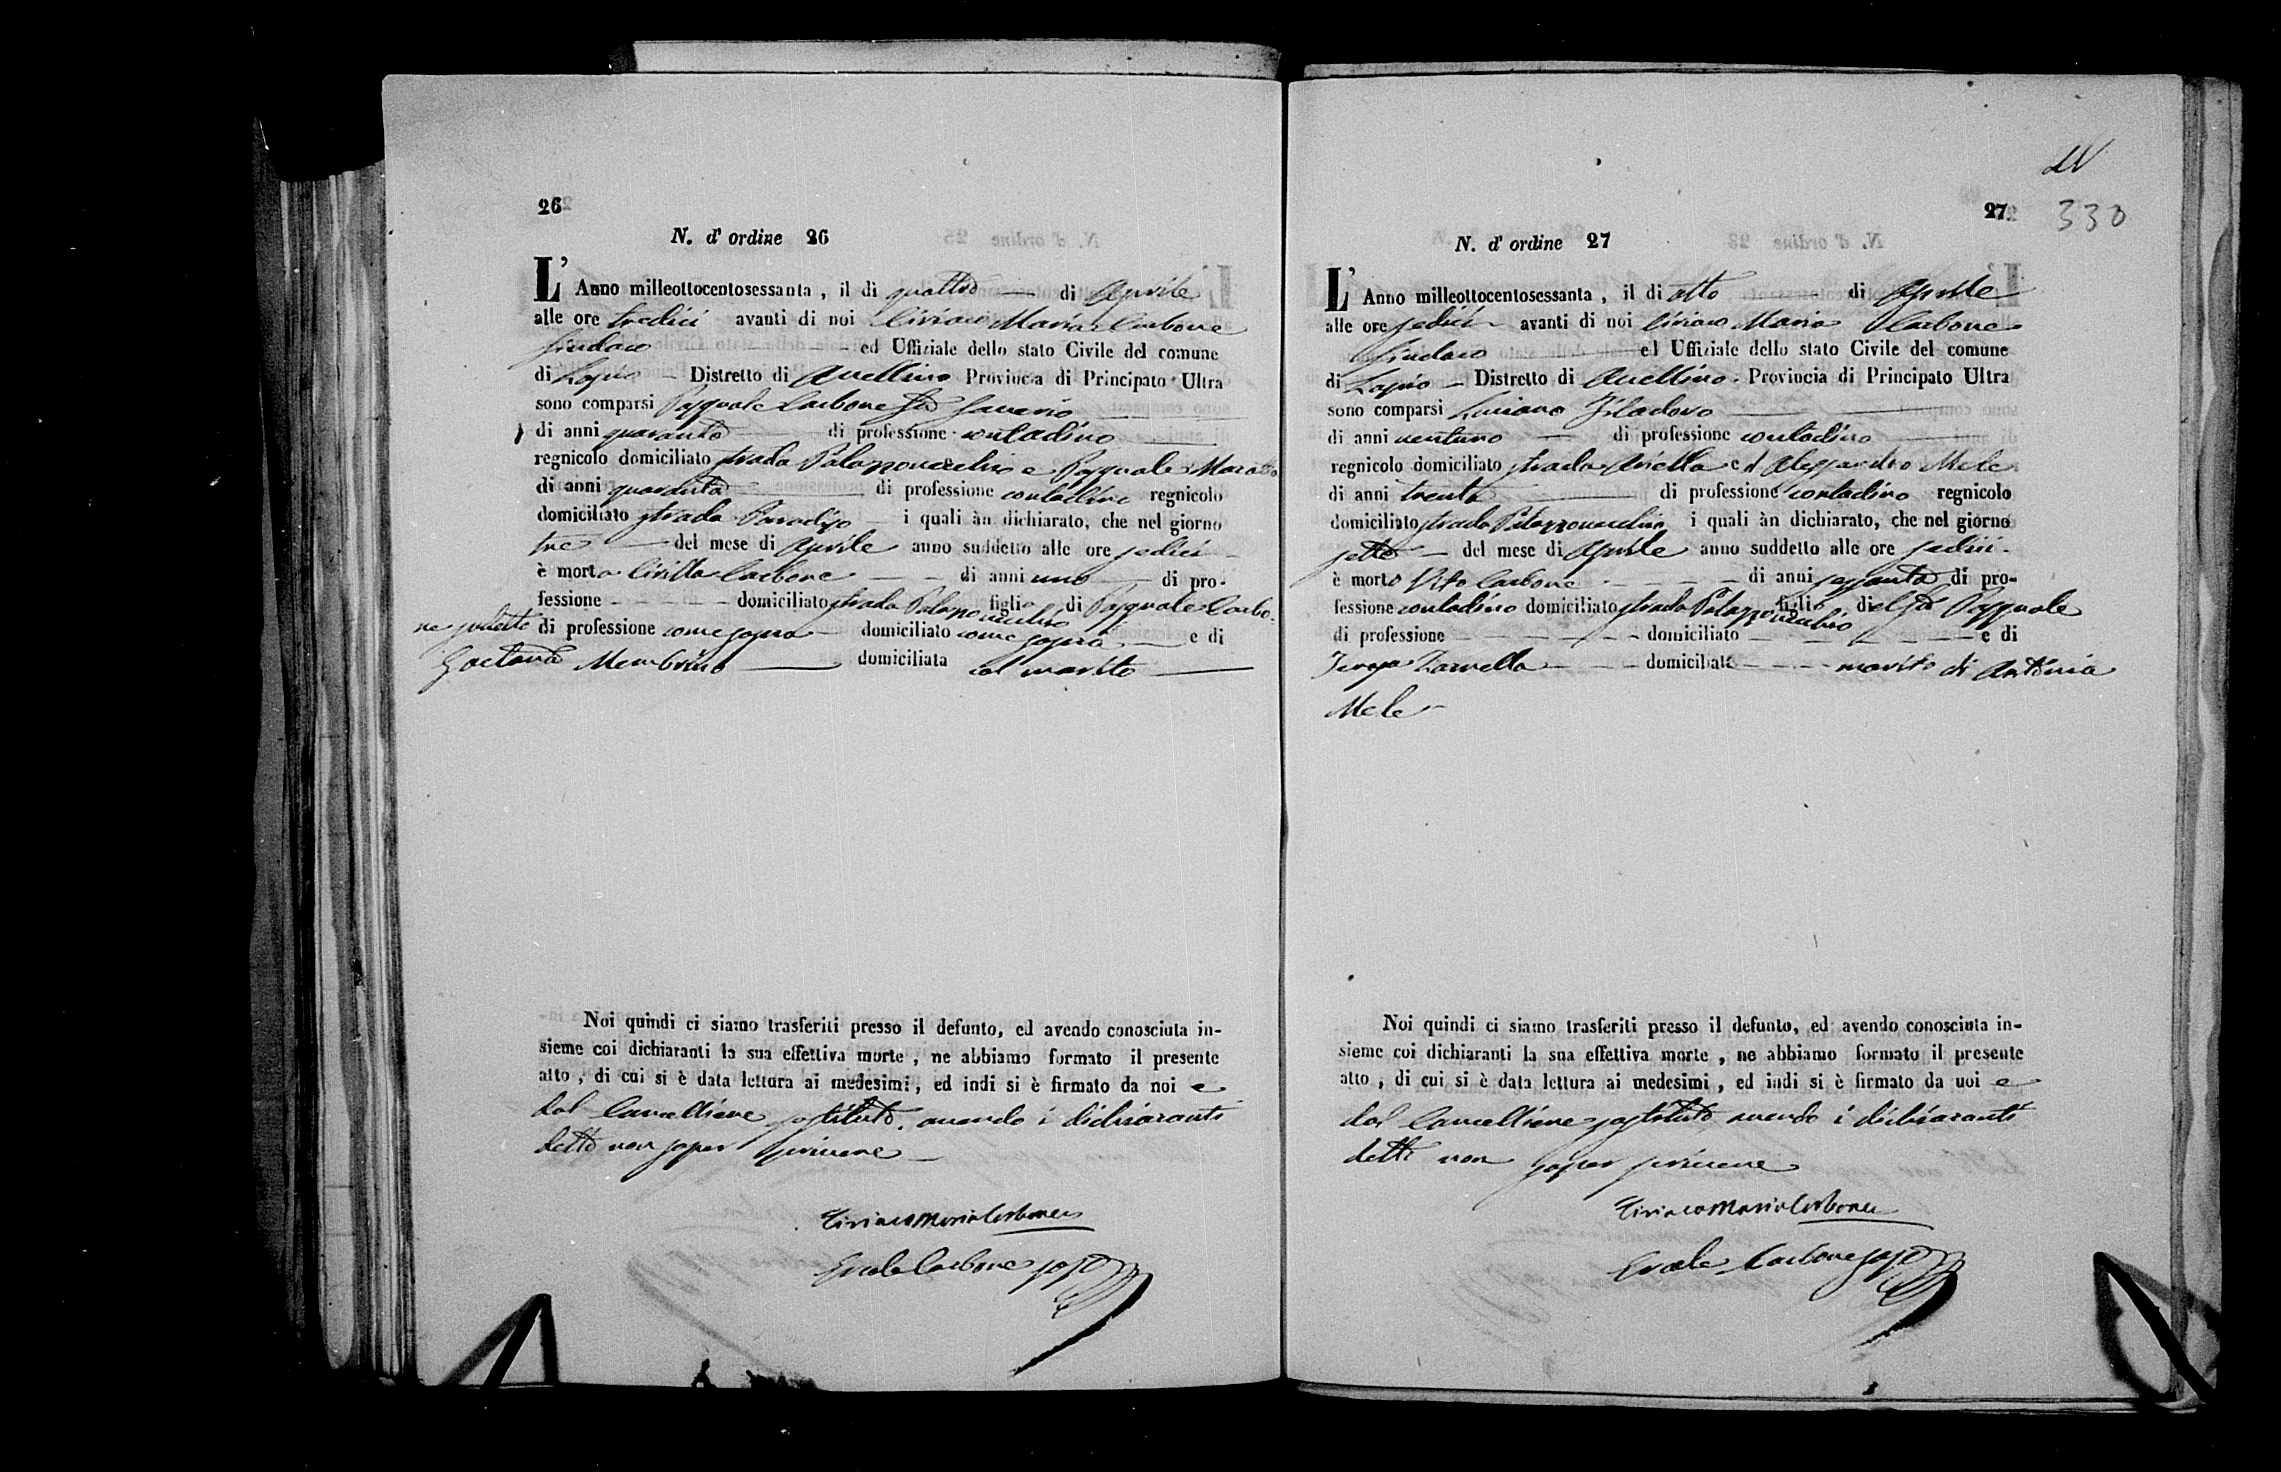 26
N. d' ordine 26
L' Anno milleottocentosessanta, il di quattro di Aprile
alle ore tredici avanti di noi Ciriaco Maria Carbone
Sindaco ed Uffiziale dello stato Civile del comune
di Lapio Distretto di Avellino Provincia di Principato Ultra
sono comparsi Pasquale Carbone fu Saverio
di anni quaranta di professione contadino
regnicolo domiciliato strada Palazzovecchio e Pasquale
di anni quaranta di professione contadino regnicolo
domiciliato strada Paradiso i quali àn dichiarato, che nel giorno
tre del mese di Aprile anno suddetto alle ore sedici
è morta Carbone di anni uno di pro-
fessione domiciliato strada Palazzovecchio figlia di Pasquale Carbo-
ne suddetto di professione come sopra domiciliato come sopra e di
Gaetana Membrino domiciliata col marito
Noi quindi ci siamo trasferiti presso il defunto, ed avendo conosciuta in-
sieme coi dichiaranti la sua effettiva morte, ne abbiamo formato il presente
atto, di cui si è data lettura ai medesimi, ed indi si è firmato da noi e
dal Cancelliere sostituto, avendo i dichiaranti
detto non saper scrivere
Ciriaco Maria Carbone
Ercole Carbone sosto
330
27
N. d' ordine 27
L' Anno milleottocentosessanta, il di otto di Aprile
alle ore sedici avanti di noi Ciriaco Maria Carbone
Sindaco ed Uffiziale dello stato Civile del comune
di Lapio Distretto di Avellino Provincia di Principato Ultra
sono comparsi Luciano
di anni ventuno di professione contadino
regnicolo domiciliato strada Ariella ed Alessandro Mele
di anni trenta di professione contadino regnicolo
domiciliato strada Palazzovecchio i quali àn dichiarato, che nel giorno
sette del mese di Aprile anno suddetto alle ore sedici
è morto Vito Carbone di anni sessanta di pro-
fessione contadino domiciliato strada Palazzovecchio figlio del fu Pasquale
di professione domiciliato e di
Teresa domiciliata marito di Antonia
Mele
Noi quindi ci siamo trasferiti presso il defunto, ed avendo conosciuta in-
sieme coi dichiaranti la sua effettiva morte, ne abbiamo formato il presente
atto, di cui si è data lettura ai medesimi, ed indi si è firmato da noi e
dal Cancelliere sostituto avendo i dichiaranti
detto non saper scrivere
Ciriaco Maria Carbone
Ercole Carbone sosto